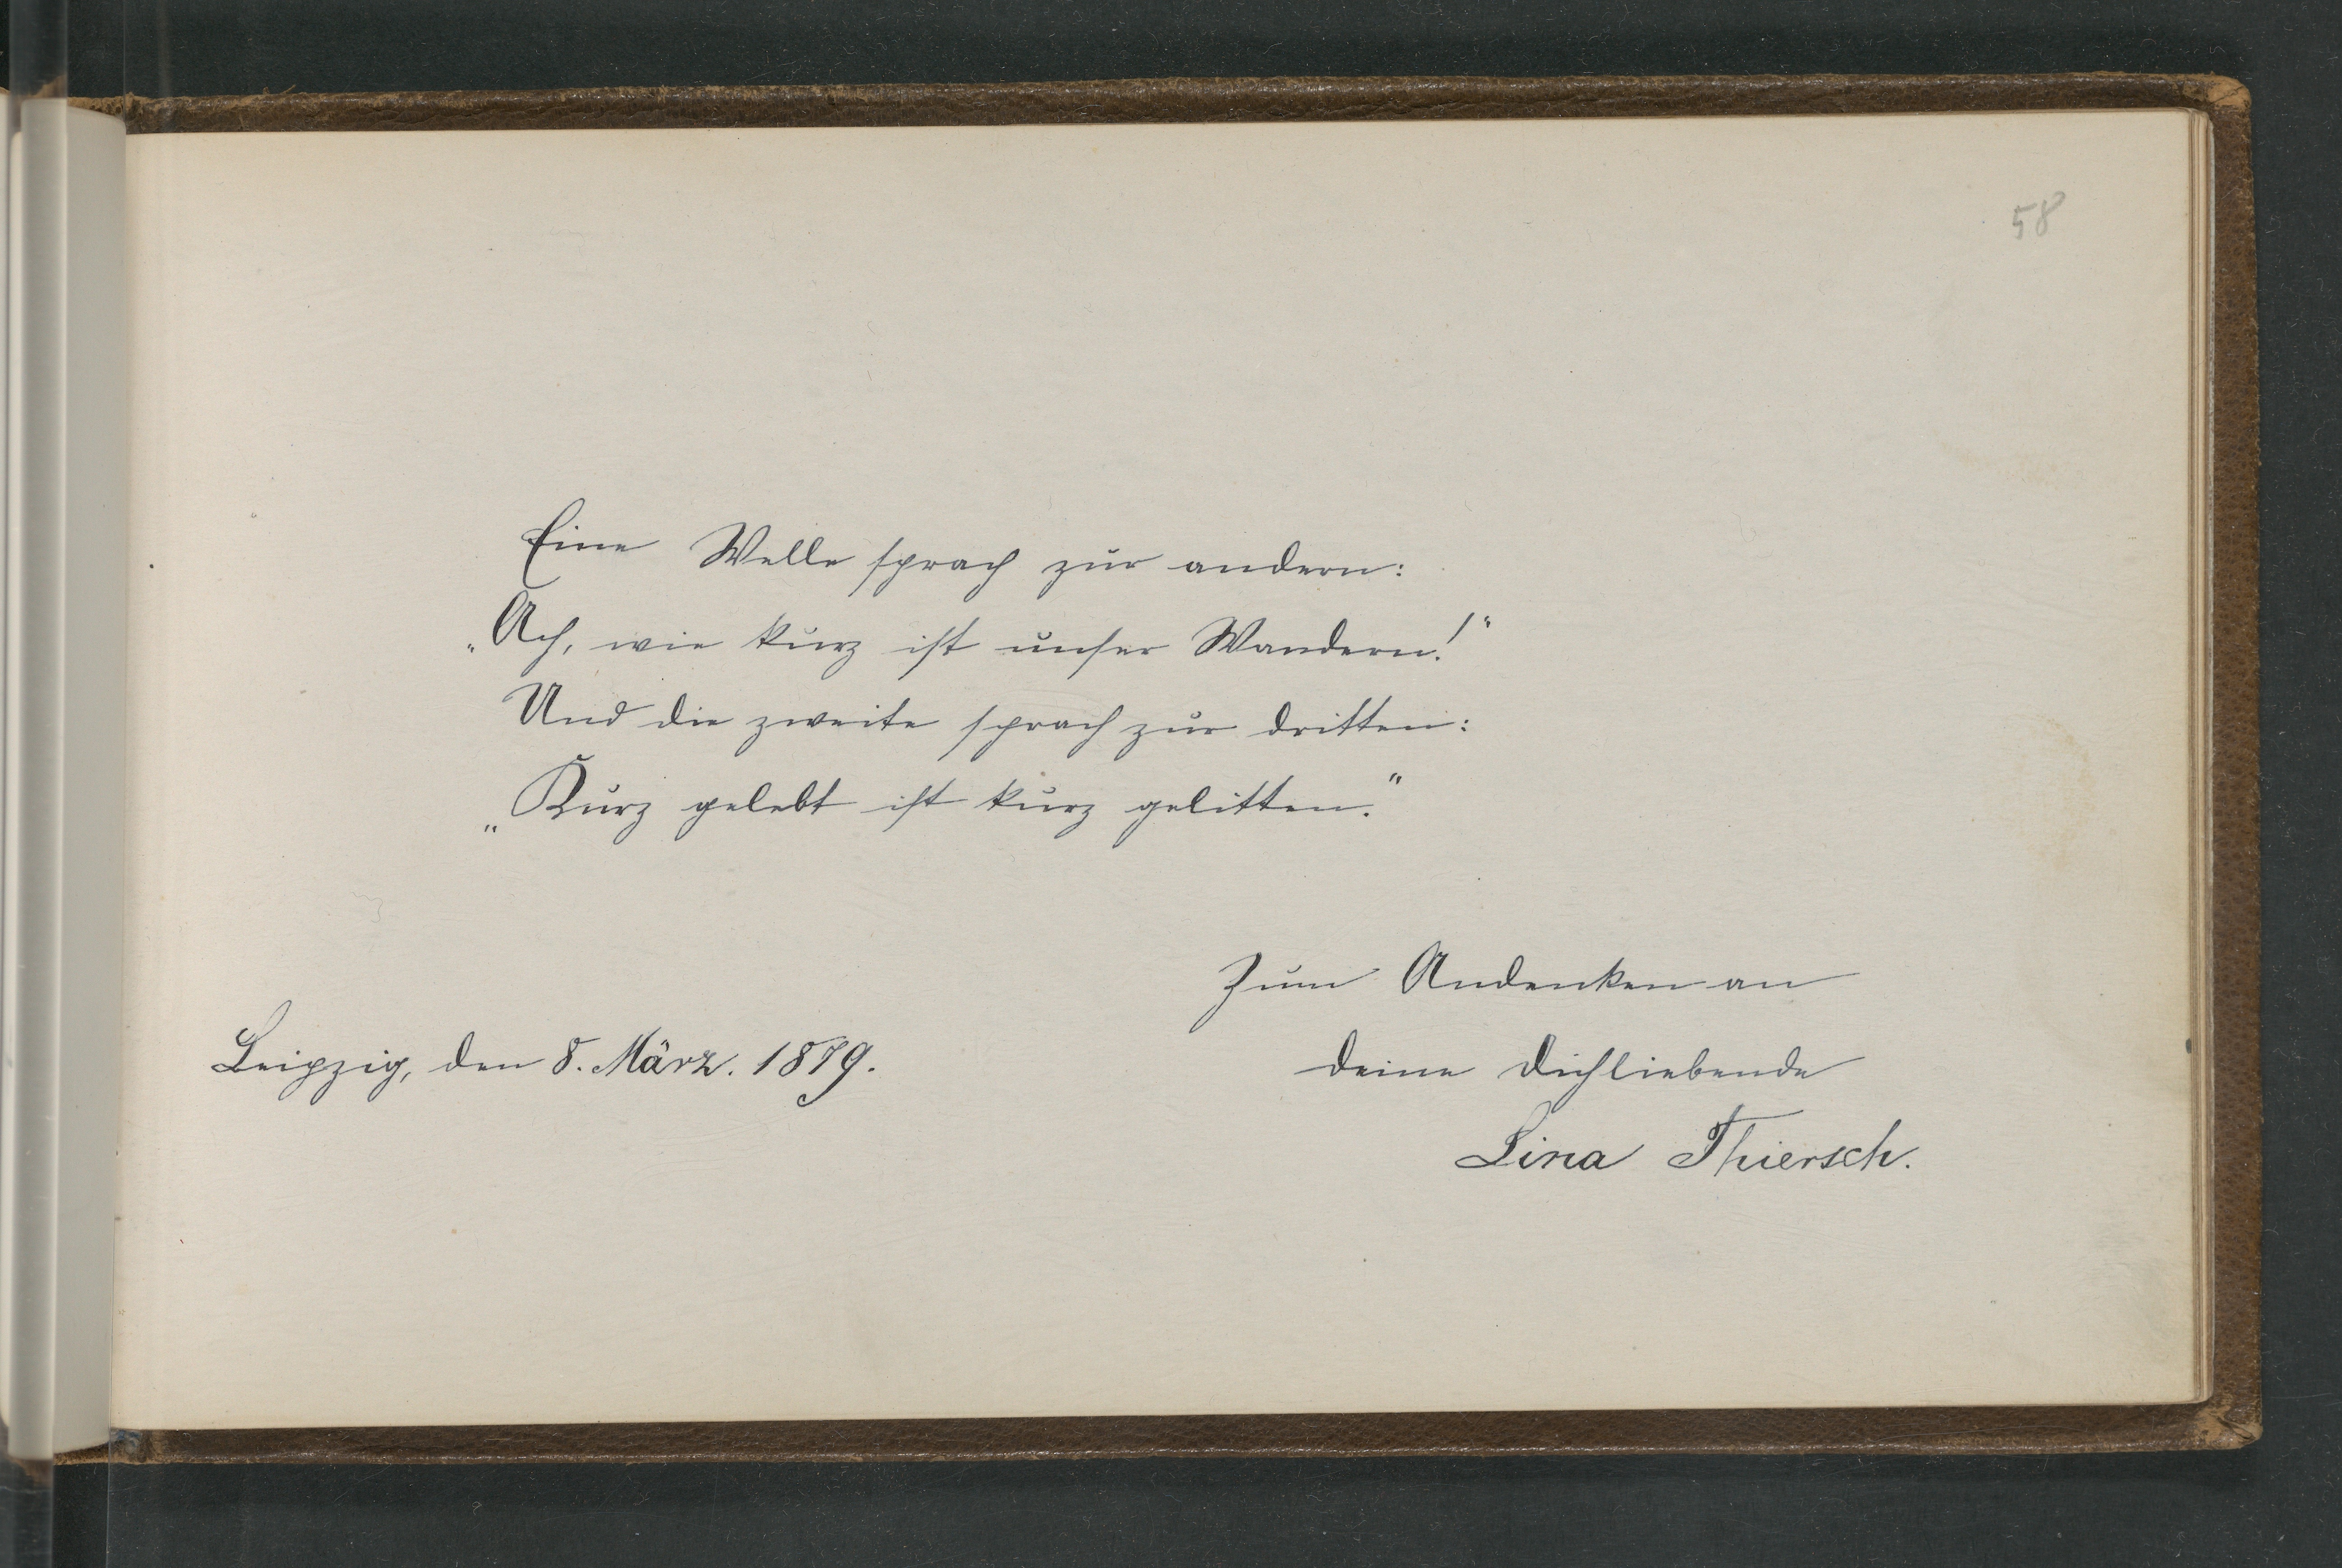 58
Eine Welle sprach zur andern:
„Ach, wie kurz ist unser Wandern!“
Und die zweite sprach zur dritten:
„Kurz gelebt ist kurz gelitten.“
Zum Andenken an
Leipzig, den 8. März. 1879.
deine dichliebende
Lina Thiersch.